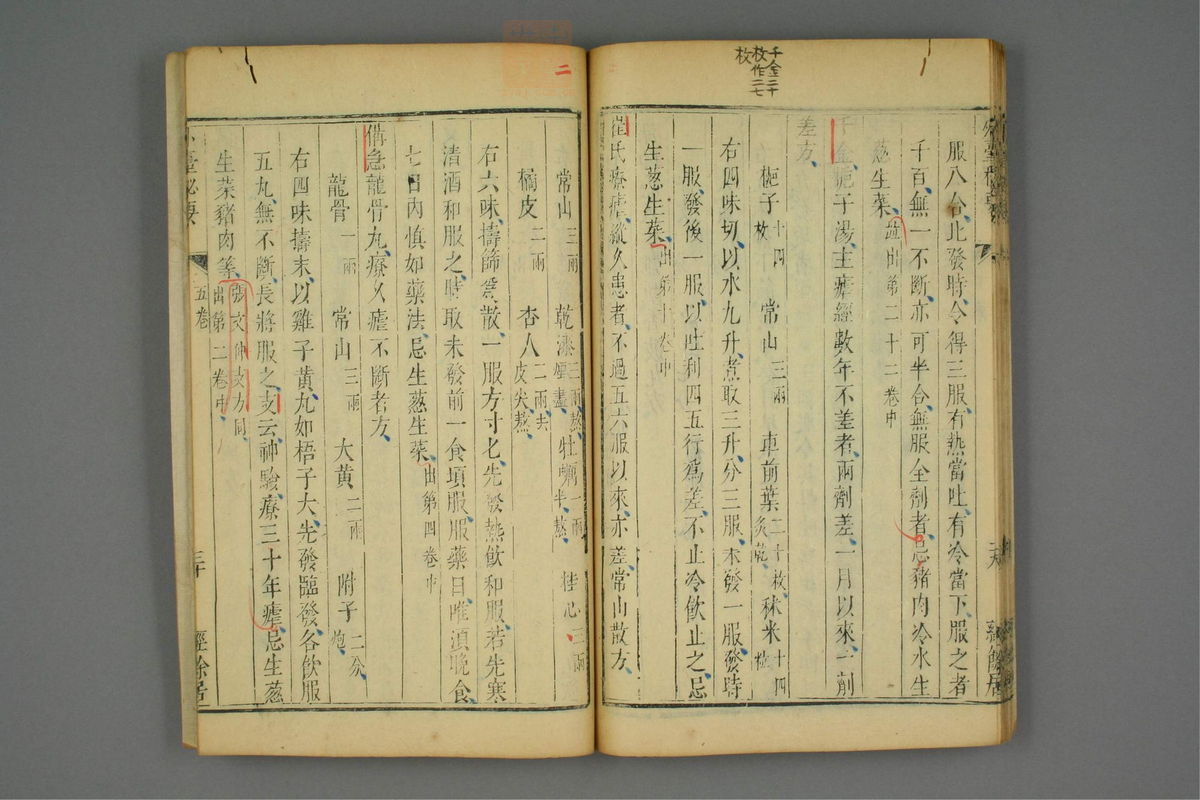 千金二十
枚作二七
枚
服八合比發時令得三服有熱當吐有冷當下服之者
千百無一不斷亦可半合無服全劑者忌猪肉冷水生
葱生菜 出第二十二卷中
千金梔子湯主瘧經數年不差者兩劑差一月以來一劑
差方
梔子 十四枚 常山 三兩 車前葉 二十枚炙乾 秫米 十四粒
右四味切以水九升煮取三升分三服未發一服發時
一服發後一服以吐利四五行爲差不止冷飲止之忌
生葱生菜 出第十卷中
崔氏療瘧縱久患者不過五六服以來亦差常山散方
常山 三兩 乾漆 三兩熬烟盡 牡蠣 一兩半熬 桂心 三兩
橘皮 二兩 杏人 二兩去皮尖熬
右六味擣篩爲散一服方寸匕先發熱飲和服若先寒
清酒和服之時取未發前一食頃服服藥日唯須晚食
七日内慎如藥法忌生葱生菜 出第四卷中
備急龍骨丸療久瘧不斷者方
龍骨 一兩 常山 三兩 大黄 二兩 附子 二分炮
右四味擣末以雞子黄丸如梧子大先發臨發各飲服
五丸無不斷長將服之支云神驗療三十年瘧忌生葱
生菜猪肉等 張文仲支方同出第二卷中
五卷
三十
經餘居
二